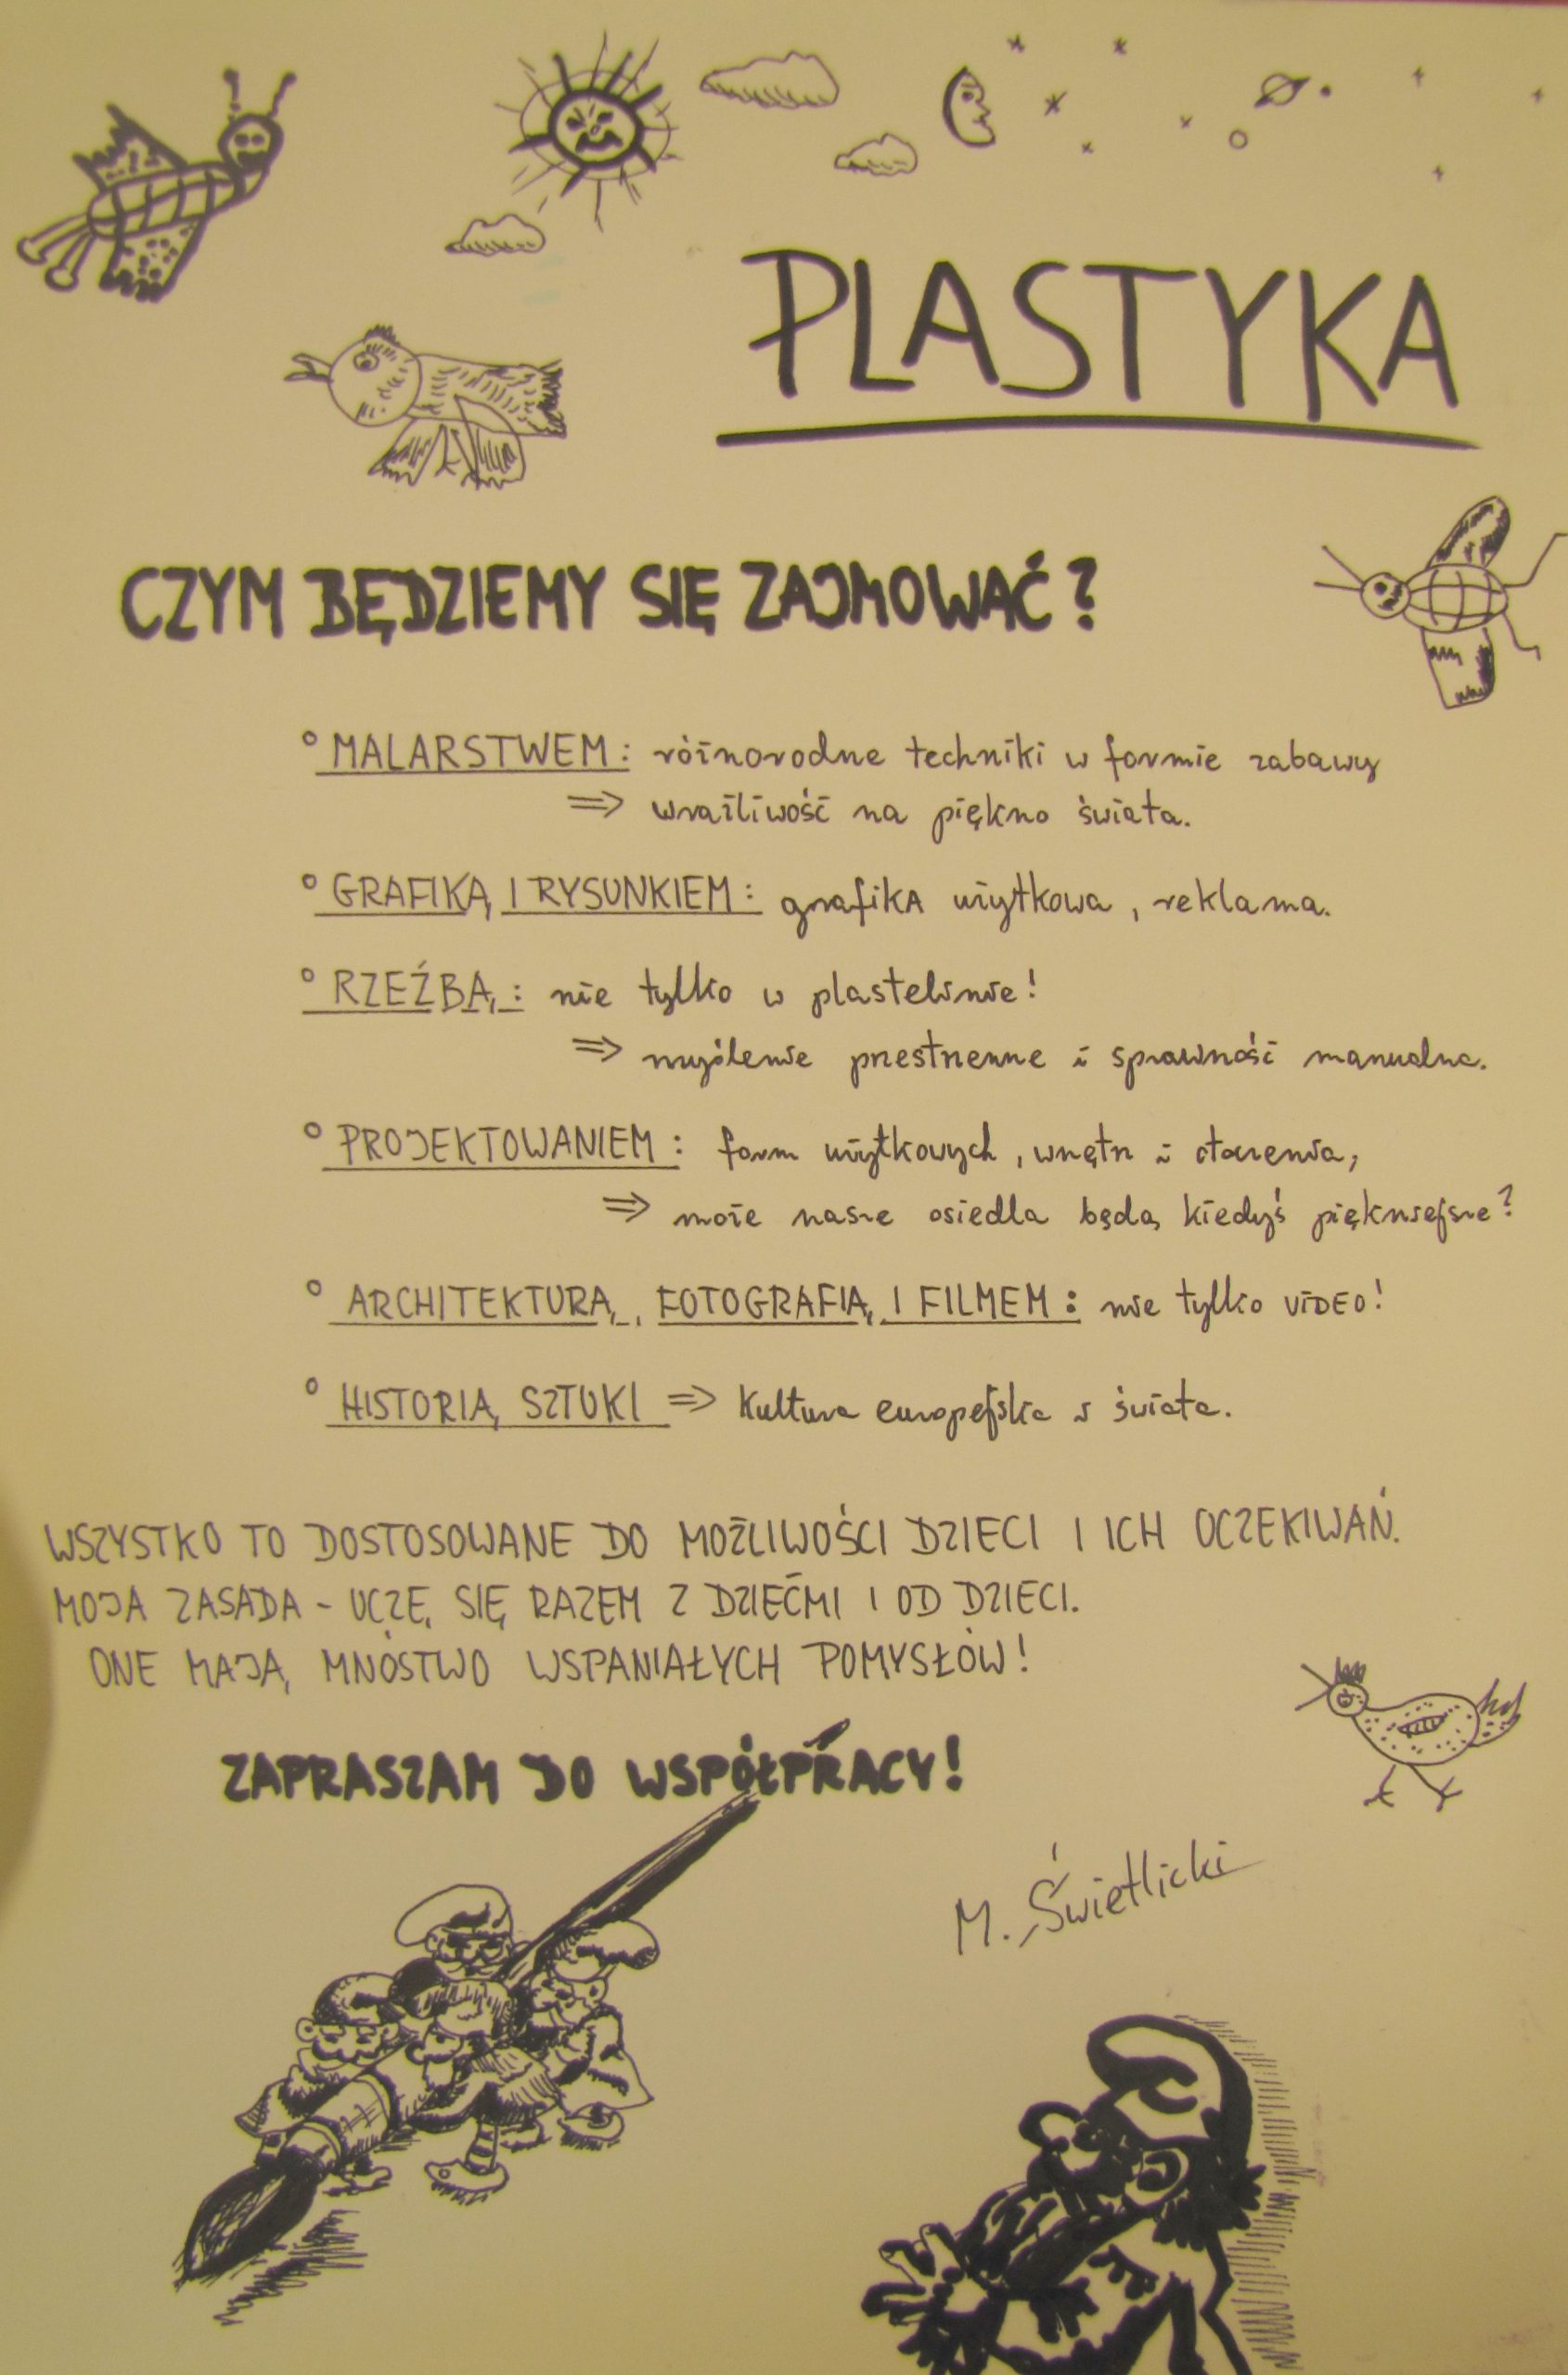 PLASTYKA
CZYM BĘDZIEMY SIĘ ZAJMOWAĆ?
° MALARSTWEM: różnorodne techniki w formie zabawy
⇒ wrażliwość na piękno świata.
° GRAFIKĄ I RYSUNKIEM: grafika użytkowa, reklama.
° RZEŹBĄ: nie tylko w plastelinie!
⇒ myślenie przestrzenne i sprawność manualna.
° PROJEKTOWANIEM: form użytkowych, wnętrz i otoczenia,
⇒ może nasze osiedla będą kiedyś piękniejsze?
° ARCHITEKTURĄ, FOTOGRAFIĄ I FILMEM: nie tylko VIDEO!
° HISTORIĄ SZTUKI ⇒ Kultura europejska i świata.
WSZYSTKO TO DOSTOSOWANE DO MOŻLIWOŚCI DZIECI I ICH OCZEKIWAŃ.
MOJA ZASADA - UCZĘ SIĘ RAZEM Z DZIEĆMI I OD DZIECI.
ONE MAJĄ MNÓSTWO WSPANIAŁYCH POMYSŁÓW!
ZAPRASZAM DO WSPÓŁPRACY!
M. Świetlicki